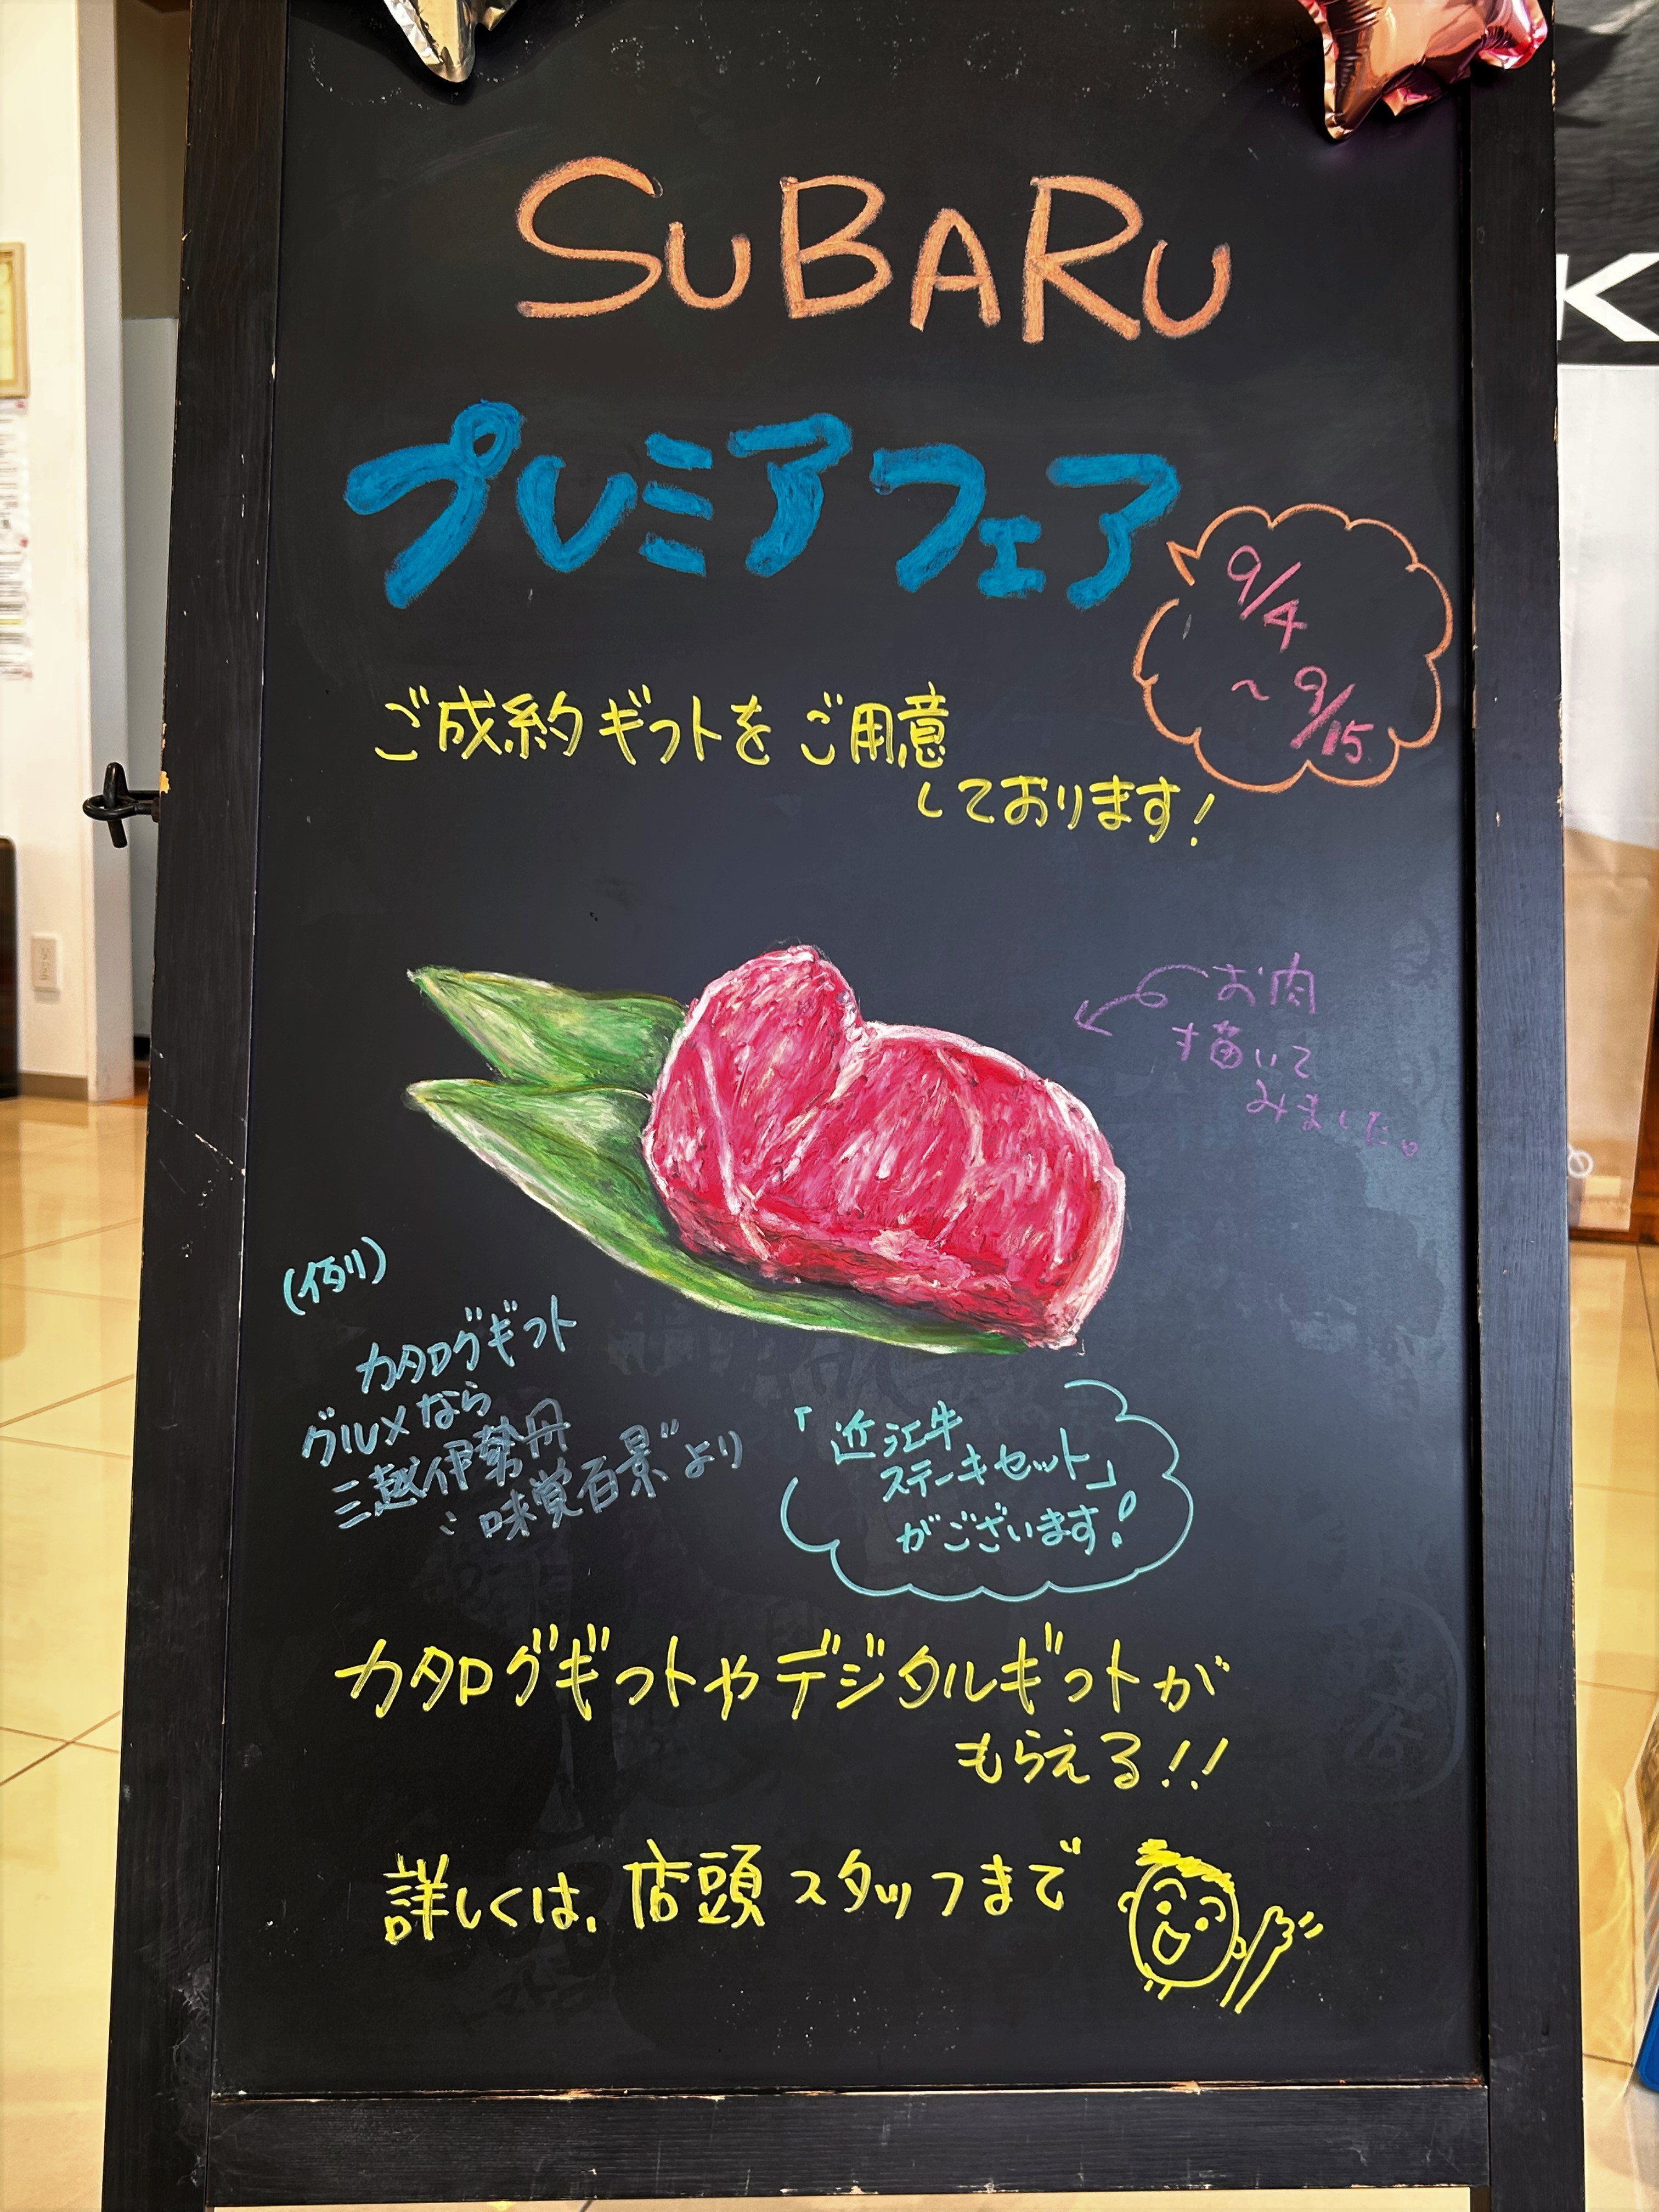 SUBARU
プレミアフェア
9/4
～9/15
ご成約ギフトをご用意
しております!
お肉
描いて
みました。
(例)
カタログギフト
グルメなら
三越伊勢丹
味覚百景"より
「近江牛
ステーキセット」
がございます!
カタログギフトやデジタルギフトが
もらえる!!
詳しくは、店頭スタッフまで
K